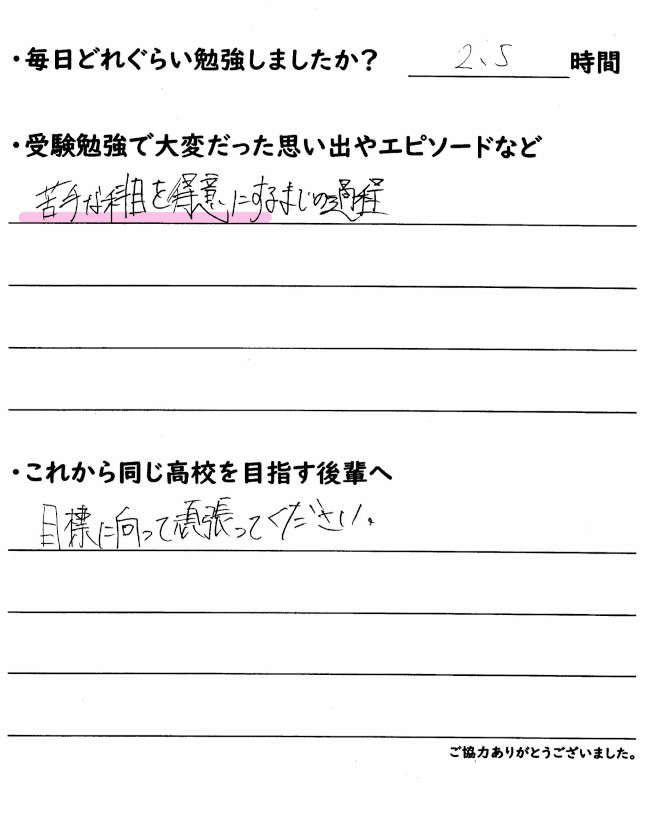 ・毎日どれぐらい勉強しましたか? 2、5 時間
・受験勉強で大変だった思い出やエピソードなど
苦手な科目を得意にするまでの過程
・これから同じ高校を目指す後輩へ
目標に向って頑張ってください。
ご協力ありがとうございました。